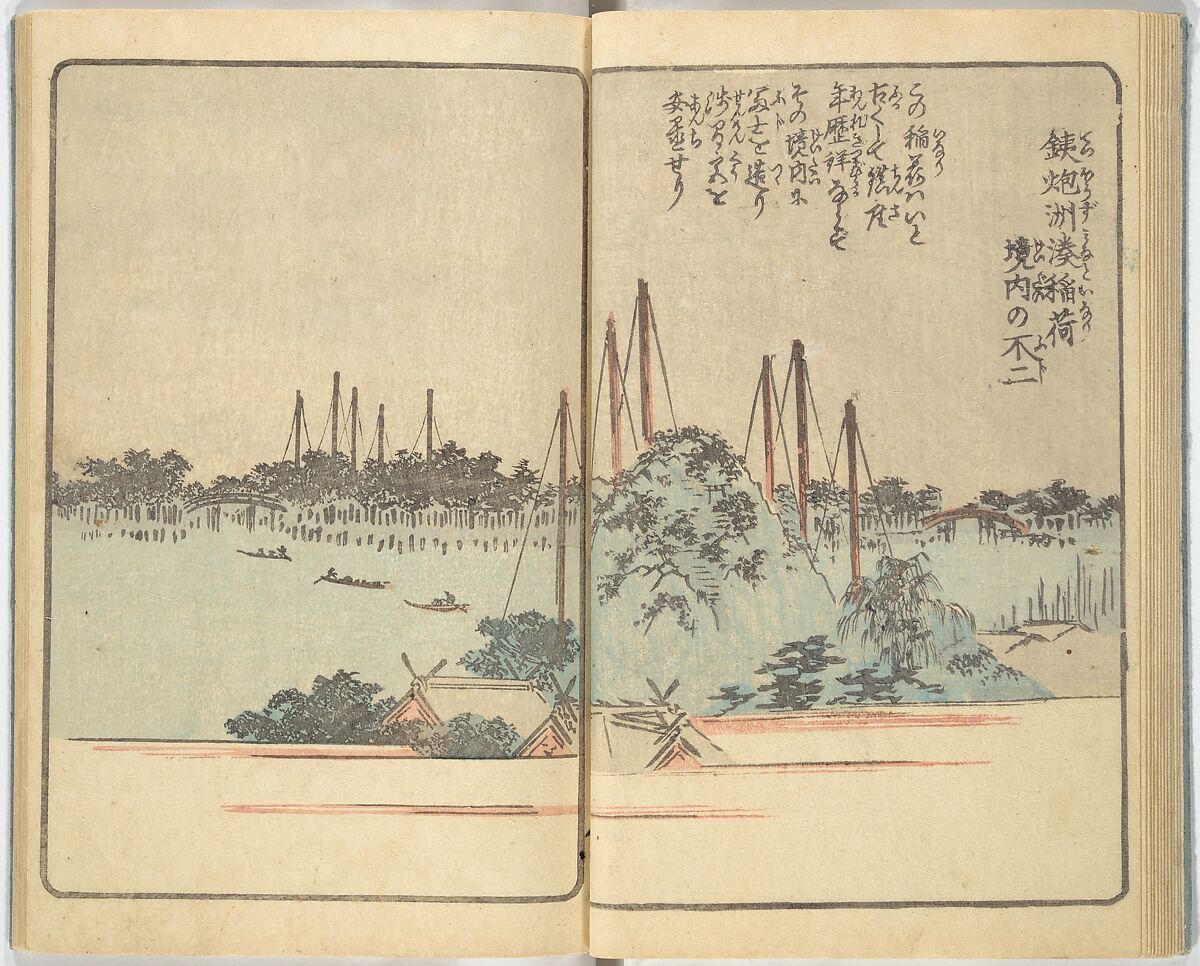 銕炮洲湊稲荷
境内の不二
この稲荷ハいと
古くして鎮座
年歴詳ならず
その境内に
富士を造り
浅間宮を
安置せり